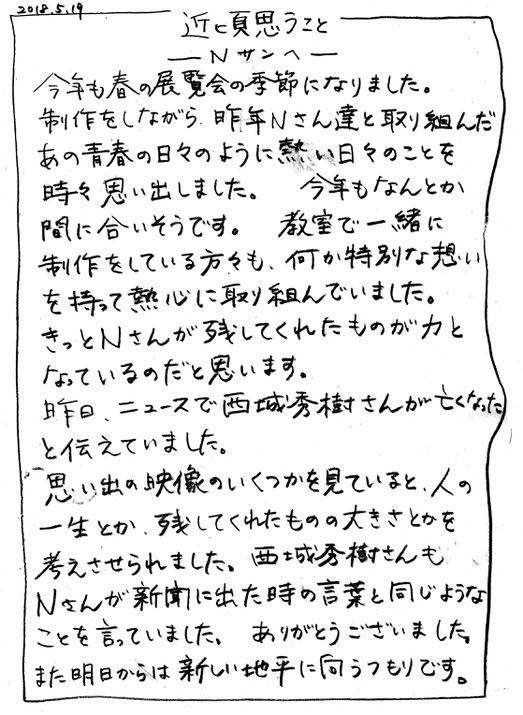 2018.5.19
近頃思うこと
―Nサンへ―
今年も春の展覧会の季節になりました。
制作をしながら、昨年Nさん達と取り組んだ
あの青春の日々のように熱い日々のことを
時々思い出しました。　今年もなんとか
間に合いそうです。　教室で一緒に
制作をしている方々も、何か特別な想い
を持って熱心に取り組んでいました。
きっとNさんが残してくれたものが力と
なっているのだと思います。
昨日、ニュースで西城秀樹さんが亡くなった
と伝えていました。
思い出の映像のいくつかを見ていると、人の
一生とか、残してくれたものの大きさとかを
考えさせられました。西城秀樹さんも
Nさんが新聞に出た時の言葉と同じような
ことを言っていました。　ありがとうございました。
また明日からは新しい地平に向うつもりです。